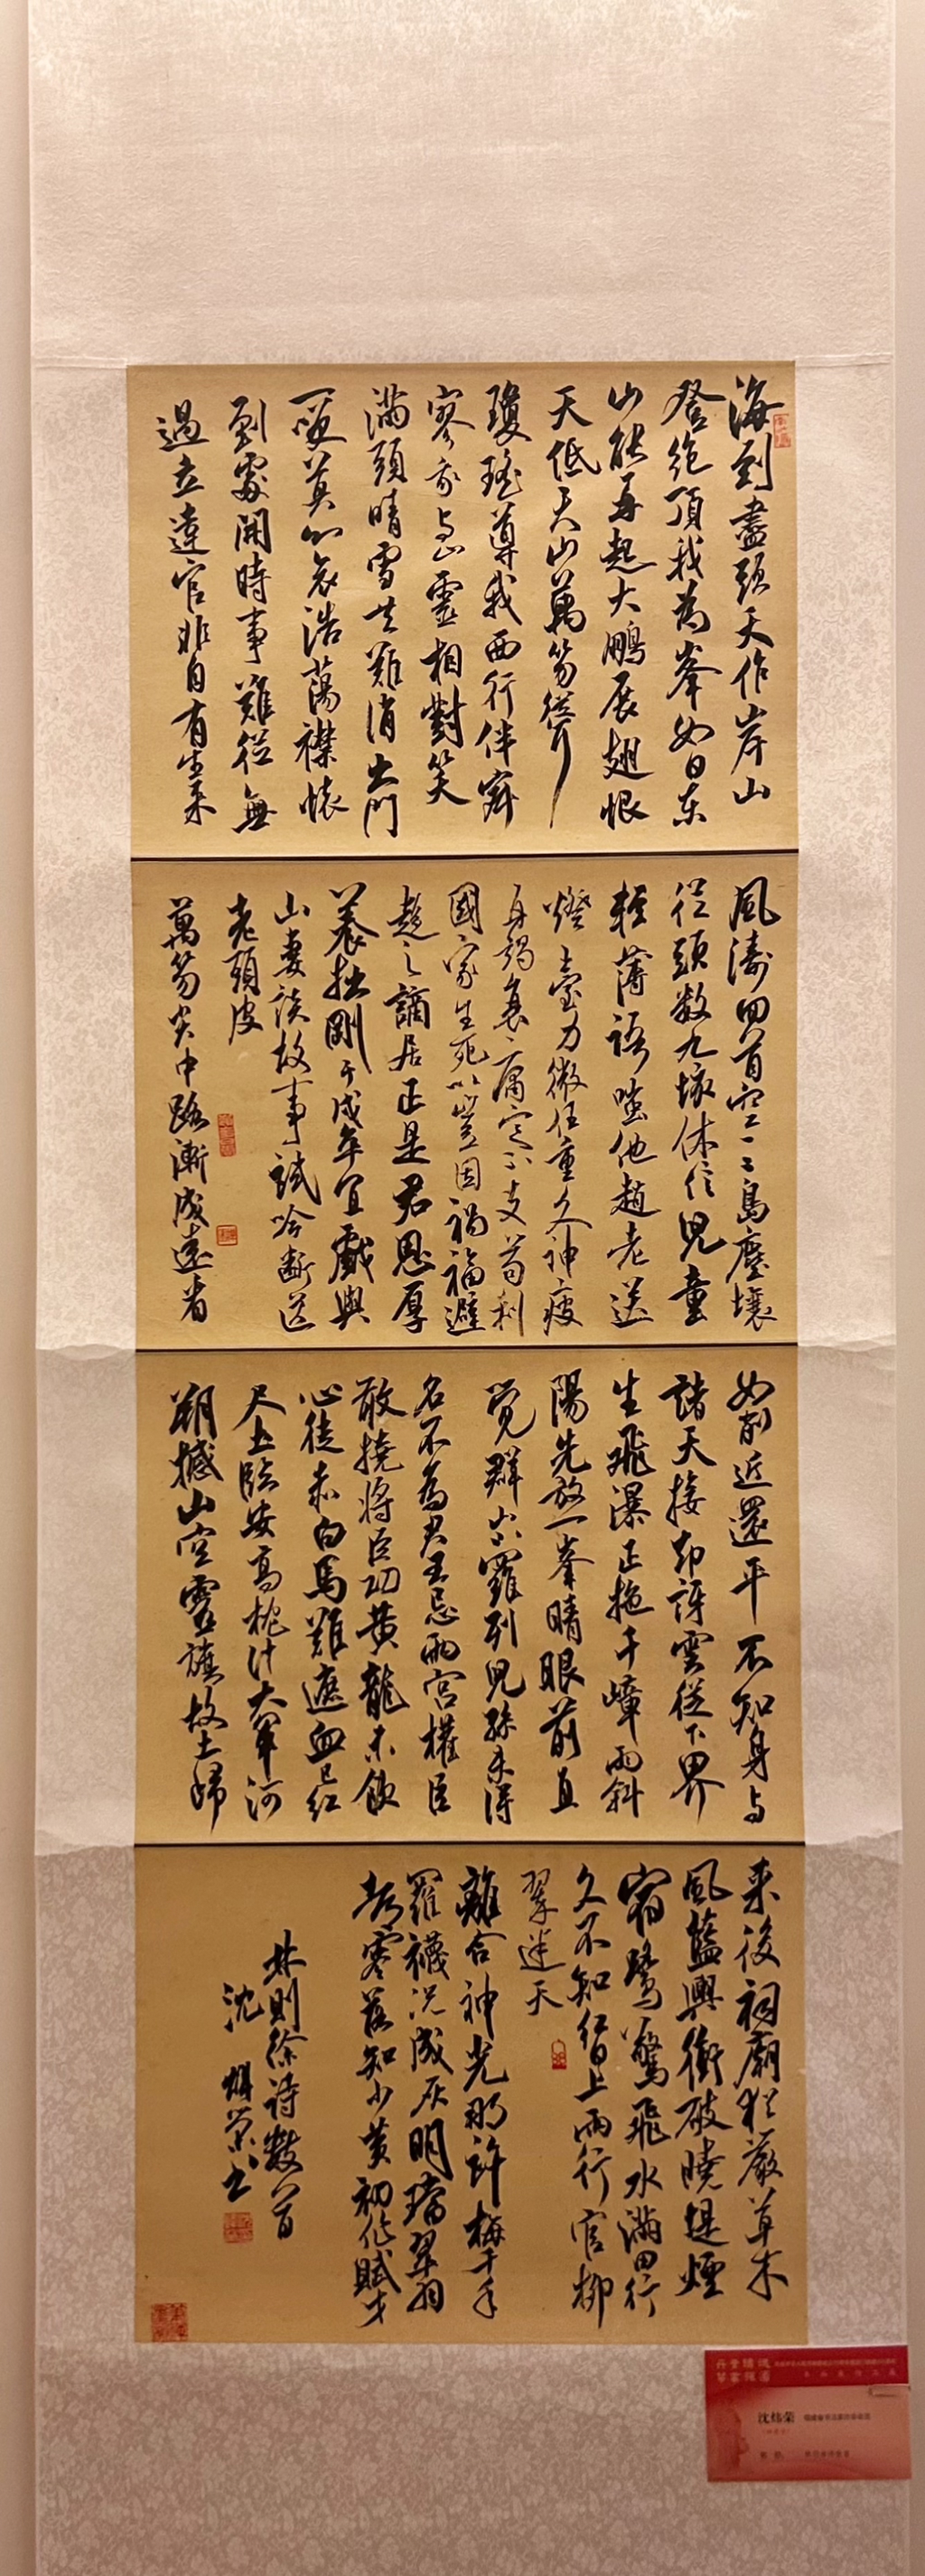 海到盡頭天作岸山
登絕頂我為峯如日東
山能再起大鵬展翅恨
天低天山萬笏聳
瓊瑤導我西行伴寂
寥我與山靈相對笑
滿頭晴雪共難消出門
一笑莫心哀浩蕩襟懷
到處開時事難從無
過立達官非自有生來
風濤回首空三島塵壤
從頭數九垓休信兒童
輕薄語嗤他趙老送
燈臺力微任重久神疲
再竭衰庸定不支苟利
國家生死以豈因禍福避
趨之謫居正是君恩厚
養拙剛于戍卒宜戲與
山妻談故事試吟斷送
老頭皮
萬笏尖中路漸成遠看
如削近還平不知身與
諸天接却訝雲從下界
生飛瀑正拖千嶂雨斜
陽先放一峯晴眼前直
覺群山羅列兒孫未得
名不為君王忌兩宮權臣
敢撓將臣功黄龍未飲
心徒赤白馬難遮血已紅
尺土臨安高枕計大軍河
朔撼山空靈旗故土歸
來後祠廟猶嚴草木
風籃輿衝破曉堤煙
宿鷺驚飛水滿田行
久不知紅日上兩行官柳
翠迷天
離合神光那許梅千手
羅襪况成灰明璫翠羽
都零落知少黄初作賦才
林則徐詩數首
沈煒榮書
沈炜荣